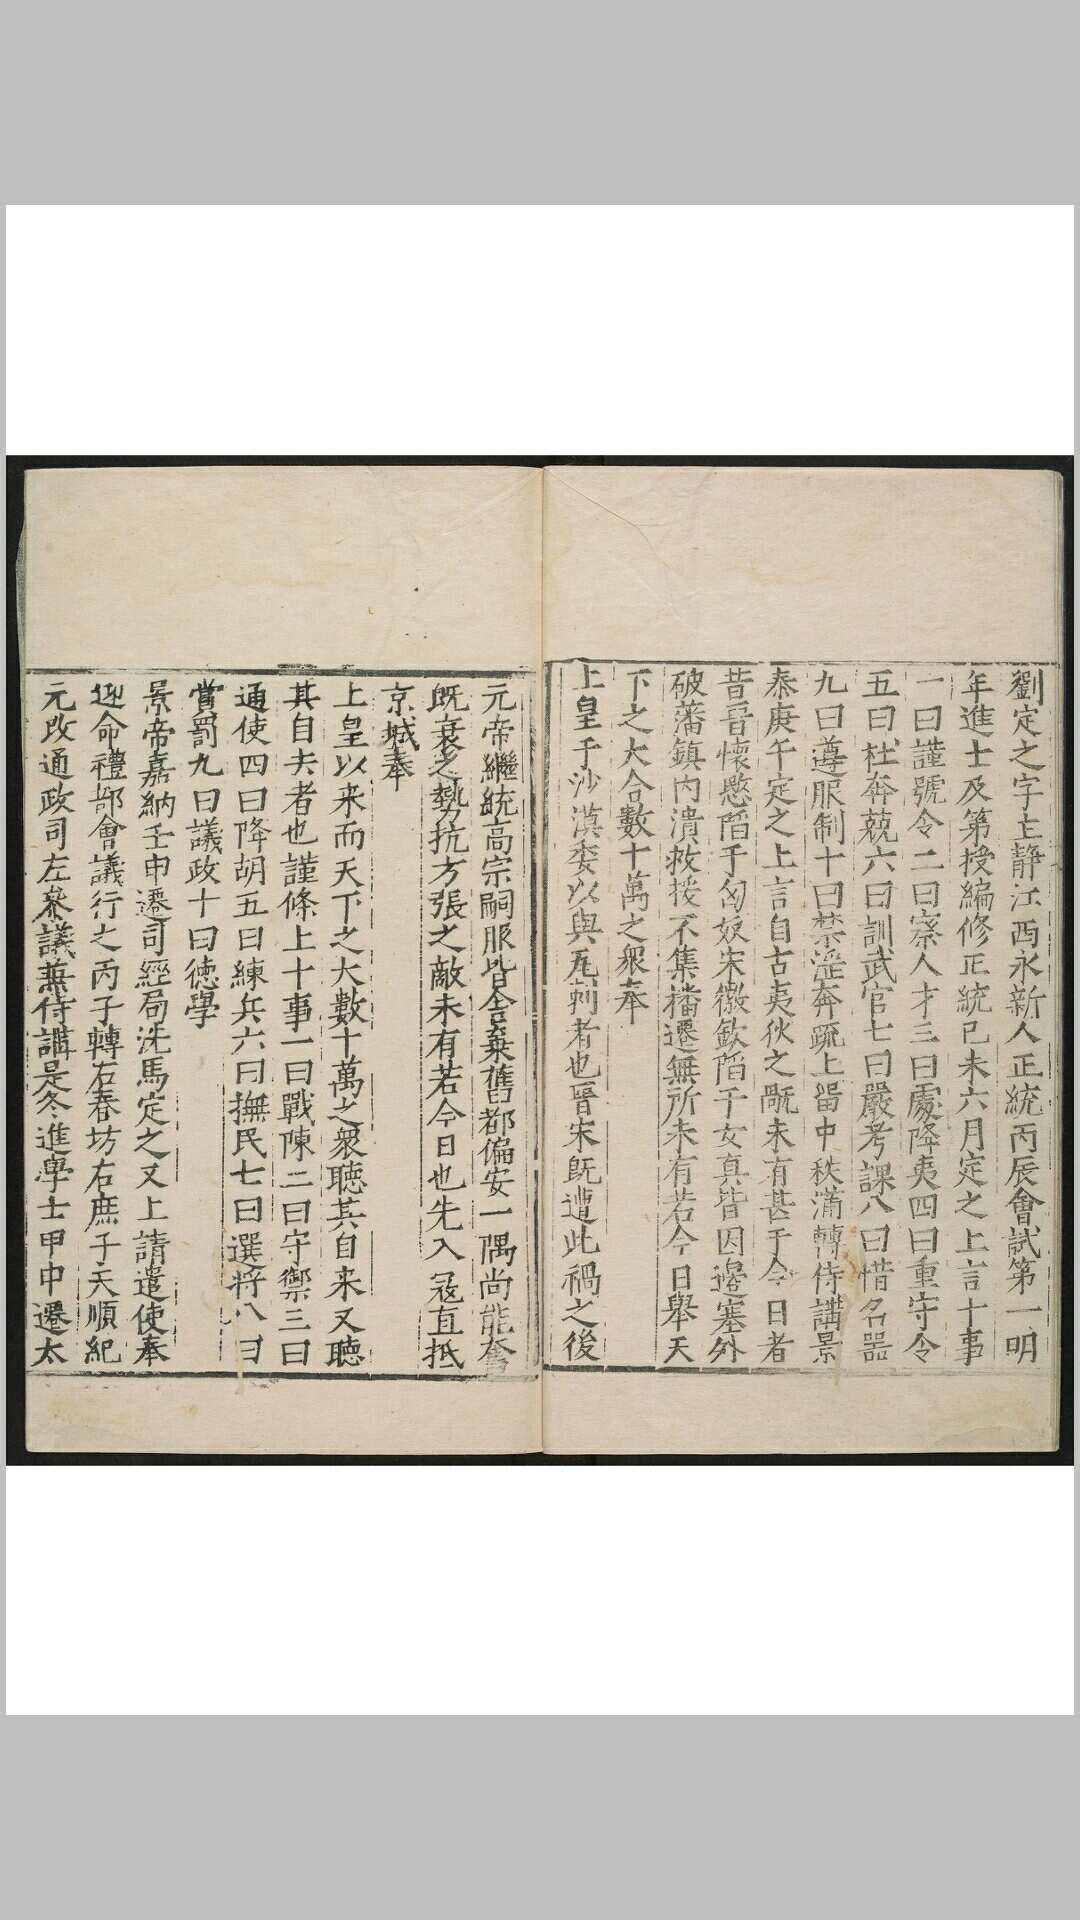 劉定之字主静江西永新人正統丙辰會試第一明
年進士及第授編修正統己未六月定之上言十事
一曰謹號令二曰察人才三曰處降夷四曰重守令
五曰杜奔兢六曰訓武官七曰嚴考課八曰惜名器
九曰遵服制十曰禁淫奔疏上留中秩滿轉侍講景
泰庚午定之上言自古夷狄之獗未有甚于今日者
昔晉懷愍陷于匈奴宋徽欽陷于女真皆因邊塞外
破藩鎮内潰救援不集播遷無所未有若今日舉天
下之大合數十萬之衆奉
上皇于沙漠委以與瓦剌者也晉宋既遭此禍之後
元帝繼統高宗嗣服皆舍棄舊都偏安一隅尚能奮
既衰之勢抗方張之敵未有若今日也先入冦直抵
京城奉
上皇以来而天下之大數十萬之衆聽其自来又聽
其自去者也謹條上十事一曰戰陳二曰守禦三曰
通使四曰降胡五曰練兵六曰撫民七曰選將八曰
賞罰九曰議政十曰徳學
景帝嘉納壬申遷司經局洗馬定之又上請遣使奉
迎命禮部會議行之丙子轉右春坊右庶子天順紀
元改通政司左叅議蕪侍講是冬進學士甲申遷太